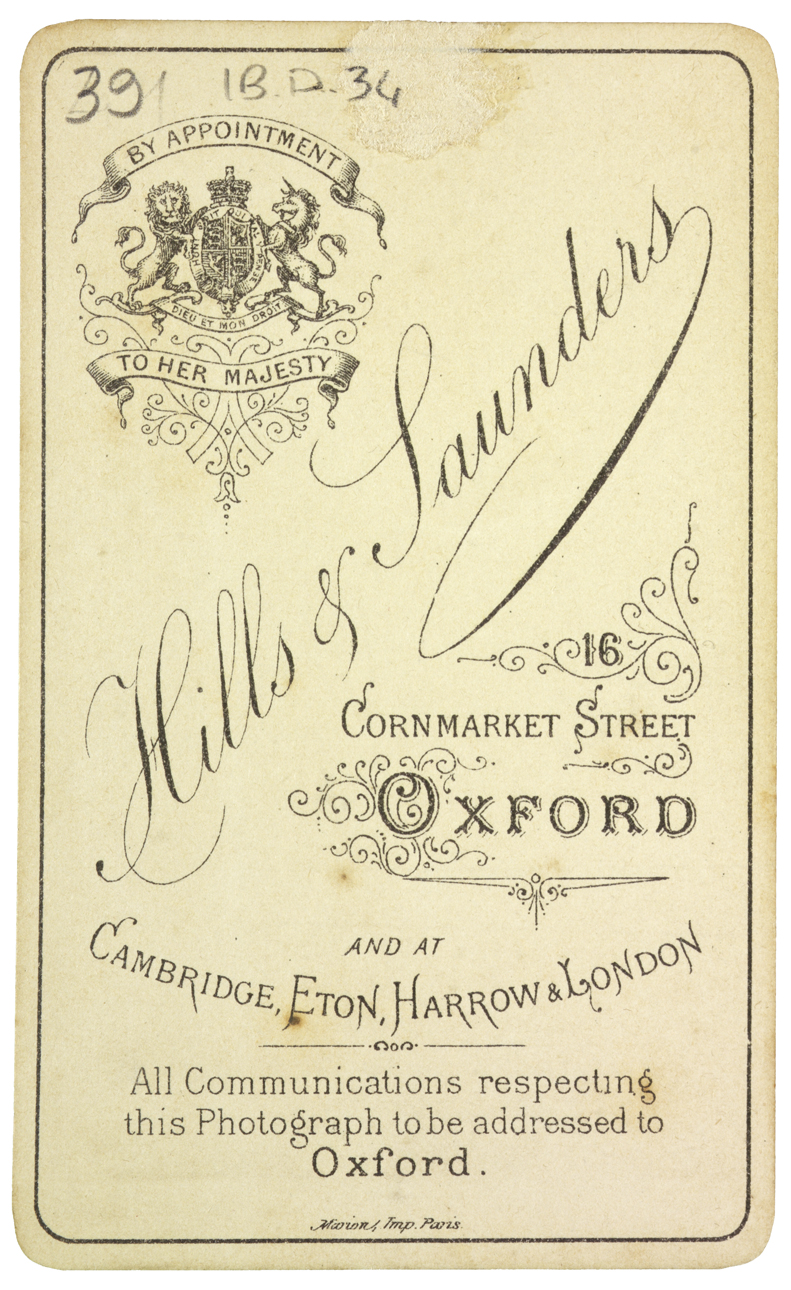 391 IB.D.34
BY APPOINTMENT
DIEU ET MON DROIT
TO HER MAJESTY
Hills & Saunders
16
CORNMARKET STREET
OXFORD
AND AT
CAMBRIDGE, ETON, HARROW & LONDON
All Communications respecting
this Photograph to be addressed to
Oxford.
Marion, Imp. Paris.